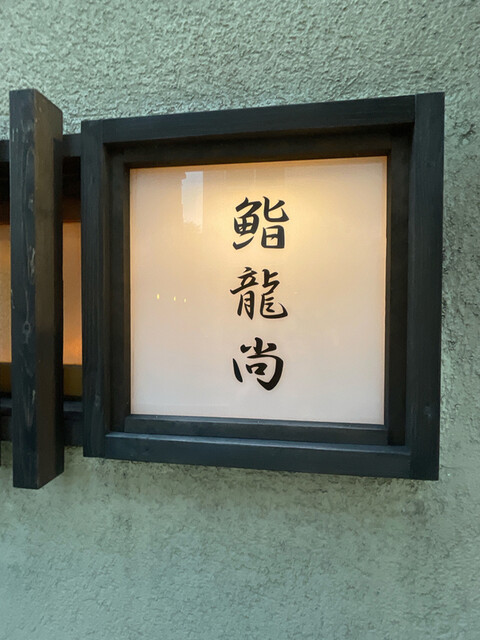 鮨龍尚